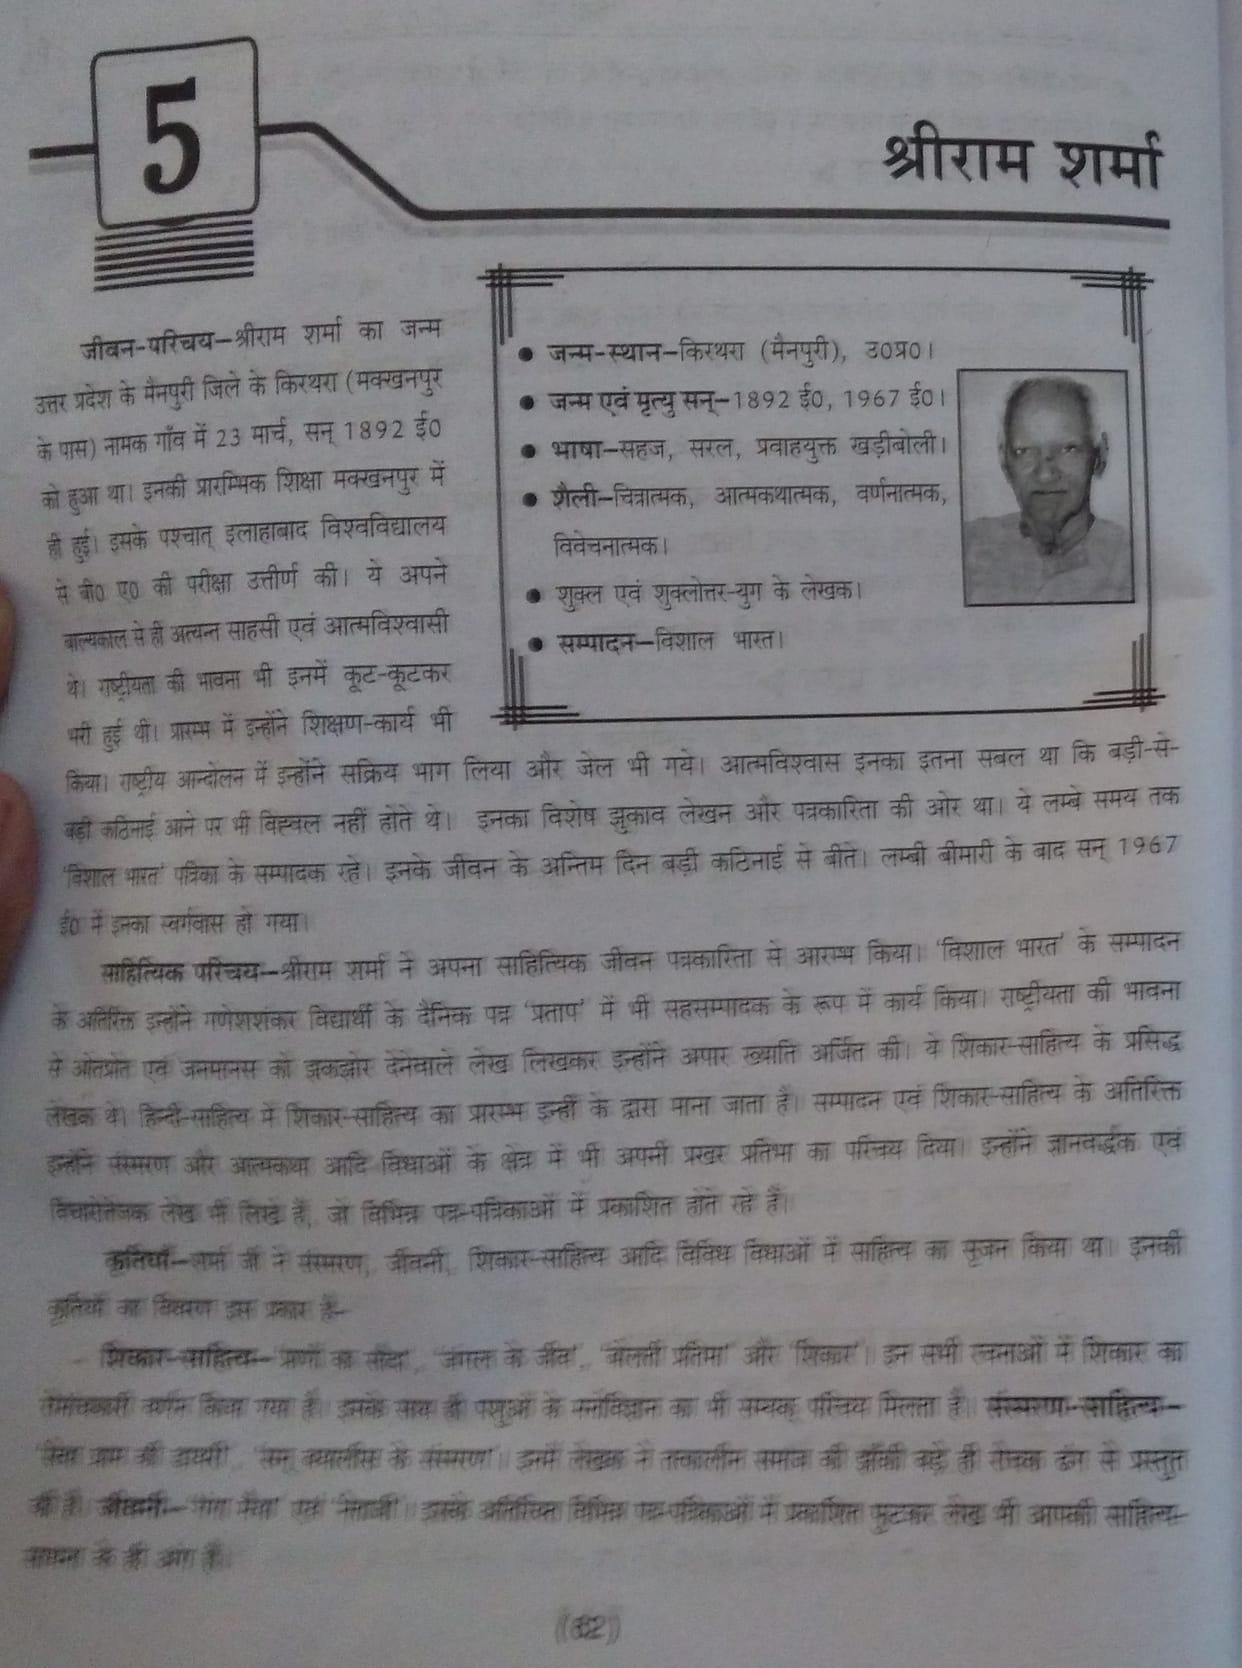 5
श्रीराम शर्मा
जीवन-परिचय—श्रीराम शर्मा का जन्म
उत्तर प्रदेश के मैनपुरी जिले के किरथरा (मक्खनपुर
के पास) नामक गाँव में 23 मार्च, सन् 1892 ई0
को हुआ था। इनकी प्रारम्भिक शिक्षा मक्खनपुर में
ही हुई। इसके पश्चात् इलाहाबाद विश्वविद्यालय
से बी0 ए0 की परीक्षा उत्तीर्ण की। ये अपने
बाल्यकाल से ही अत्यन्त साहसी एवं आत्मविश्वासी
थे। राष्ट्रीयता की भावना भी इनमें कूट-कूटकर
भरी हुई थी। प्रारम्भ में इन्होंने शिक्षण-कार्य भी
• जन्म-स्थान—किरथरा (मैनपुरी), उ0प्र0।
• जन्म एवं मृत्यु सन्—1892 ई0, 1967 ई0।
• भाषा—सहज, सरल, प्रवाहयुक्त खड़ीबोली।
• शैली—चित्रात्मक, आत्मकथात्मक, वर्णनात्मक,
विवेचनात्मक।
• शुक्ल एवं शुक्लोत्तर-युग के लेखक।
• सम्पादन—विशाल भारत।
किया। राष्ट्रीय आन्दोलन में इन्होंने सक्रिय भाग लिया और जेल भी गये। आत्मविश्वास इनका इतना सबल था कि बड़ी-से-
बड़ी कठिनाई आने पर भी विह्वल नहीं होते थे। इनका विशेष झुकाव लेखन और पत्रकारिता की ओर था। ये लम्बे समय तक
'विशाल भारत' पत्रिका के सम्पादक रहे। इनके जीवन के अन्तिम दिन बड़ी कठिनाई से बीते। लम्बी बीमारी के बाद सन् 1967
ई0 में इनका स्वर्गवास हो गया।
साहित्यिक परिचय—श्रीराम शर्मा ने अपना साहित्यिक जीवन पत्रकारिता से आरम्भ किया। 'विशाल भारत' के सम्पादन
के अतिरिक्त इन्होंने गणेशशंकर विद्यार्थी के दैनिक पत्र 'प्रताप' में भी सहसम्पादक के रूप में कार्य किया। राष्ट्रीयता की भावना
से ओतप्रोत एवं जनमानस को झकझोर देनेवाले लेख लिखकर इन्होंने अपार ख्याति अर्जित की। ये शिकार-साहित्य के प्रसिद्ध
लेखक थे। हिन्दी-साहित्य में शिकार-साहित्य का प्रारम्भ इन्हीं के द्वारा माना जाता है। सम्पादन एवं शिकार-साहित्य के अतिरिक्त
इन्होंने संस्मरण और आत्मकथा आदि विधाओं के क्षेत्र में भी अपनी प्रखर प्रतिभा का परिचय दिया। इन्होंने ज्ञानवर्द्धक एवं
विचारोत्तेजक लेख भी लिखे हैं, जो विभिन्न पत्र-पत्रिकाओं में प्रकाशित होते रहे हैं।
कृतियाँ—शर्मा जी ने संस्मरण, जीवनी, शिकार-साहित्य आदि विविध विधाओं में साहित्य का सृजन किया था। इनकी
कृतियों का विवरण इस प्रकार है—
शिकार-साहित्य—'प्राणों का सौदा', 'जंगल के जीव', 'बोलती प्रतिमा' और 'शिकार'। इन सभी रचनाओं में शिकार का
रोमांचकारी वर्णन किया गया है। इसके साथ ही पशुओं के मनोविज्ञान का भी सम्यक् परिचय मिलता है। संस्मरण-साहित्य—
'सेवा ग्राम की डायरी', 'सन् बयालीस के संस्मरण'। इनमें लेखक ने तत्कालीन समाज की झाँकी बड़े ही रोचक ढंग से प्रस्तुत
की है। जीवनी—'गंगा मैया' एवं 'नेताजी'। इसके अतिरिक्त विभिन्न पत्र-पत्रिकाओं में प्रकाशित फुटकर लेख भी आपकी साहित्य-
साधना के ही अंग हैं।
((62))